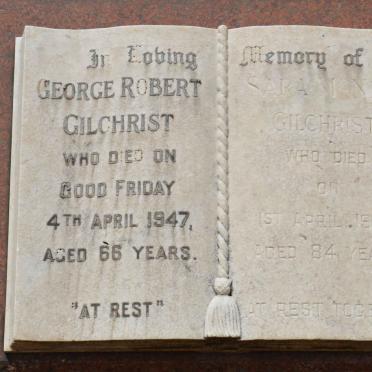 In Loving
GEORGE ROBERT
GILCHRIST
WHO DIED ON
GOOD FRIDAY
4TH APRIL 1947,
AGED 66 YEARS.
"AT REST"
Memory of
GILCHRIST
WHO DIED
ON
1ST APRIL
AGED 84
AT REST